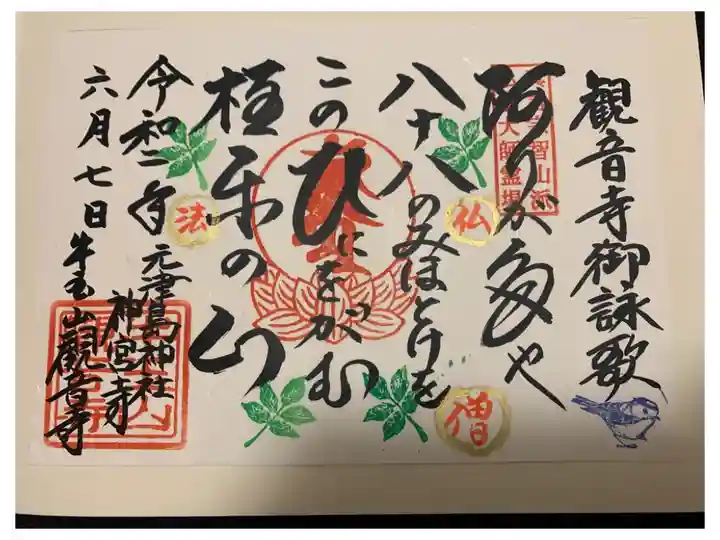 観音寺御詠歌
阿りが多や
八十八のみほとけを
この
ひにをがむ
極楽の山
令和二年
六月七日
元津島神社
神宮寺
牛玉山観音寺
智山派
大師霊場
仏
法
僧